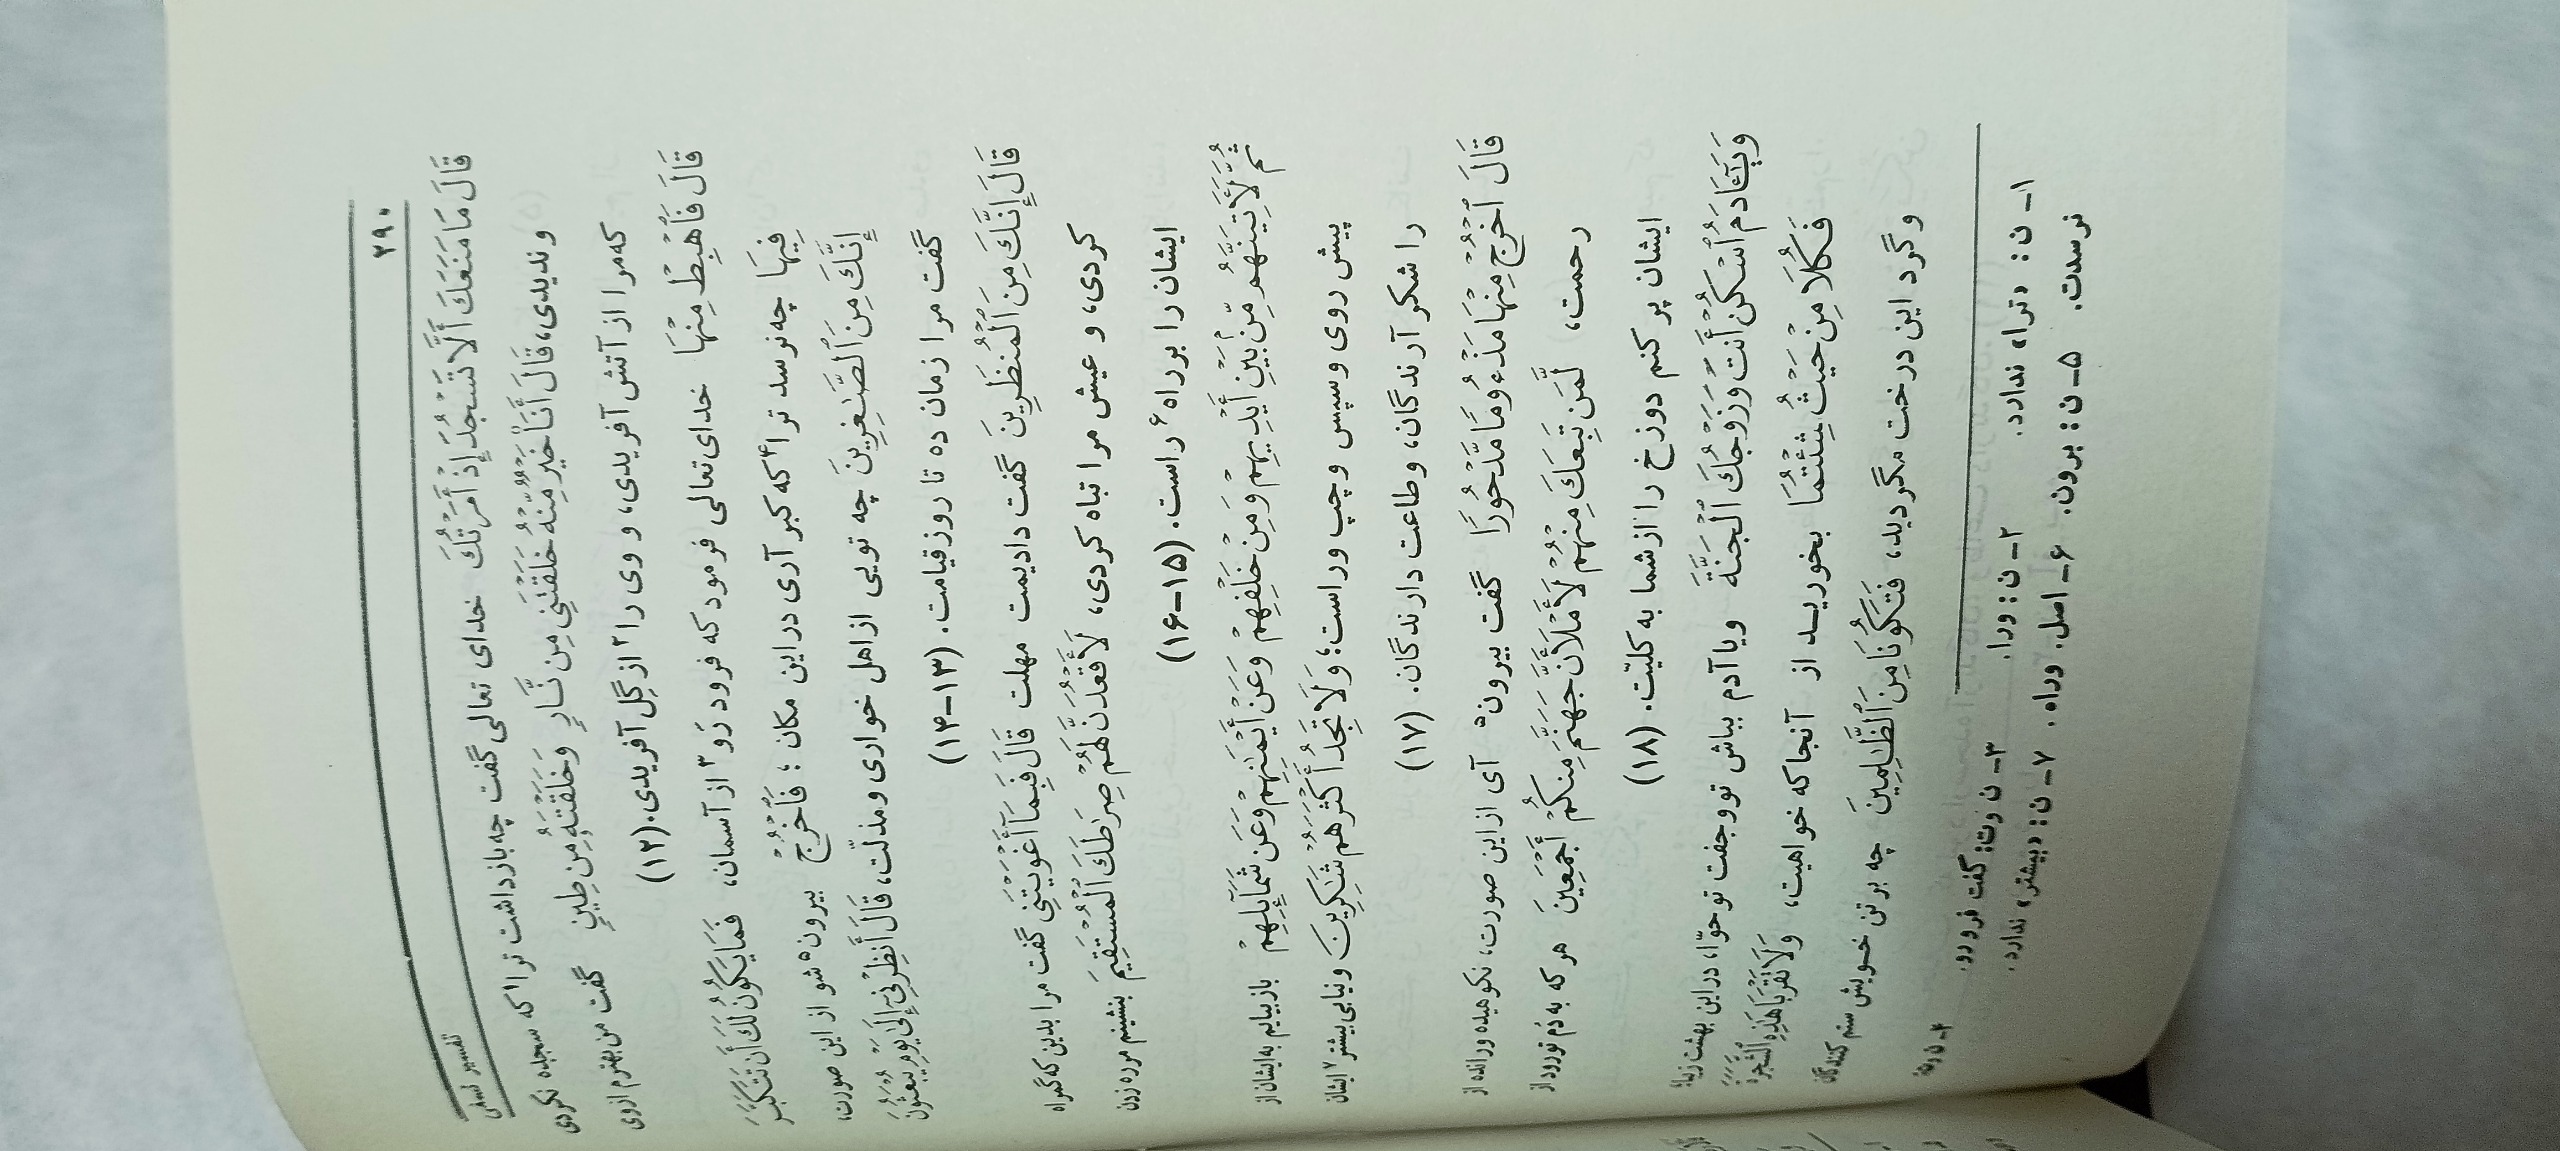 ۲۹۰
تفسیر نسفی
قَالَ مَا مَنَعَكَ أَلَّا تَسْجُدَ إِذْ أَمَرْتُكَ خدای تعالی گفت چه بازداشت ترا۱ که سجده نکردی
و ندیدی، قَالَ أَنَا۠ خَيْرٌ مِّنْهُ خَلَقْتَنِي مِن نَّارٍ وَخَلَقْتَهُۥ مِن طِينٍ گفت من بهترم از وی
که مرا از آتش آفریدی، و وی را۲ از گِل آفریدی. (۱۲)
قَالَ فَٱهْبِطْ مِنْهَا خدای تعالی فرمود که فرود رَو۳ از آسمان، فَمَا يَكُونُ لَكَ أَن تَتَكَبَّرَ
فِيهَا چه نرسد ترا۴ که کبر آری در این مکان ؛ فَٱخْرُجْ بیرون۵ شو از این صورت،
إِنَّكَ مِنَ ٱلصَّـٰغِرِينَ چه تویی از اهل خواری و مذلّت، قَالَ أَنظِرْنِيٓ إِلَىٰ يَوْمِ يُبْعَثُونَ
گفت مرا زمان ده تا روز قیامت. (۱۳-۱۴)
قَالَ إِنَّكَ مِنَ ٱلْمُنظَرِينَ گفت دادیمت مهلت قَالَ فَبِمَآ أَغْوَيْتَنِي گفت مرا بدین که گمراه
کردی، و عیش مرا تباه کردی، لَأَقْعُدَنَّ لَهُمْ صِرَٰطَكَ ٱلْمُسْتَقِيمَ بنشینم مر ره زدن
ایشان را بر راه۶ راست. (۱۵-۱۶)
ثُمَّ لَأَتِيَنَّهُم مِّنۢ بَيْنِ أَيْدِيهِمْ وَمِنْ خَلْفِهِمْ وَعَنْ أَيْمَـٰنِهِمْ وَعَن شَمَآئِلِهِمْ باز بیایم به ایشان از
پیش روی و سپس و چپ و راست؛ وَلَا تَجِدُ أَكْثَرَهُمْ شَـٰكِرِينَ و نیابی بیشتر۷ ایشان
را شکر آرندگان، و طاعت دارندگان. (۱۷)
قَالَ ٱخْرُجْ مِنْهَا مَذْءُومًا مَّدْحُورًا گفت بیرون۵ آی از این صورت، نکوهیده و رانده از
رحمت، لَّمَن تَبِعَكَ مِنْهُمْ لَأَمْلَأَنَّ جَهَنَّمَ مِنكُمْ أَجْمَعِينَ هر که به دُم تو رود از
ایشان پر کنم دوزخ را از شما به کلیّت. (۱۸)
وَيَـٰٓـَٔادَمُ ٱسْكُنْ أَنتَ وَزَوْجُكَ ٱلْجَنَّةَ و یا آدم بباش تو و جفت تو حوّا، در این بهشت زیبا؛
فَكُلَا مِنْ حَيْثُ شِئْتُمَا بخوریــد از آنجا که خواهیت، وَلَا تَقْرَبَا هَـٰذِهِ ٱلشَّجَرَةَ
و گرد این درخت مگردید، فَتَكُونَا مِنَ ٱلظَّـٰلِمِينَ چه بر تن خویش ستم کنندگان
۱- ن: «ترا» ندارد. ۲- ن: ورا. ۳- ن و ت: گفت فرو دو. ۴- ن و ت:
نرسدت. ۵- ن: برون. ۶- اصل. وراه. ۷- ن: «بیشتر» ندارد.